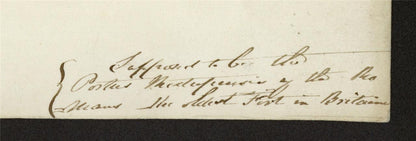 Supposed to be the
Portus of the Ro
mans the oldest Fort in Britain